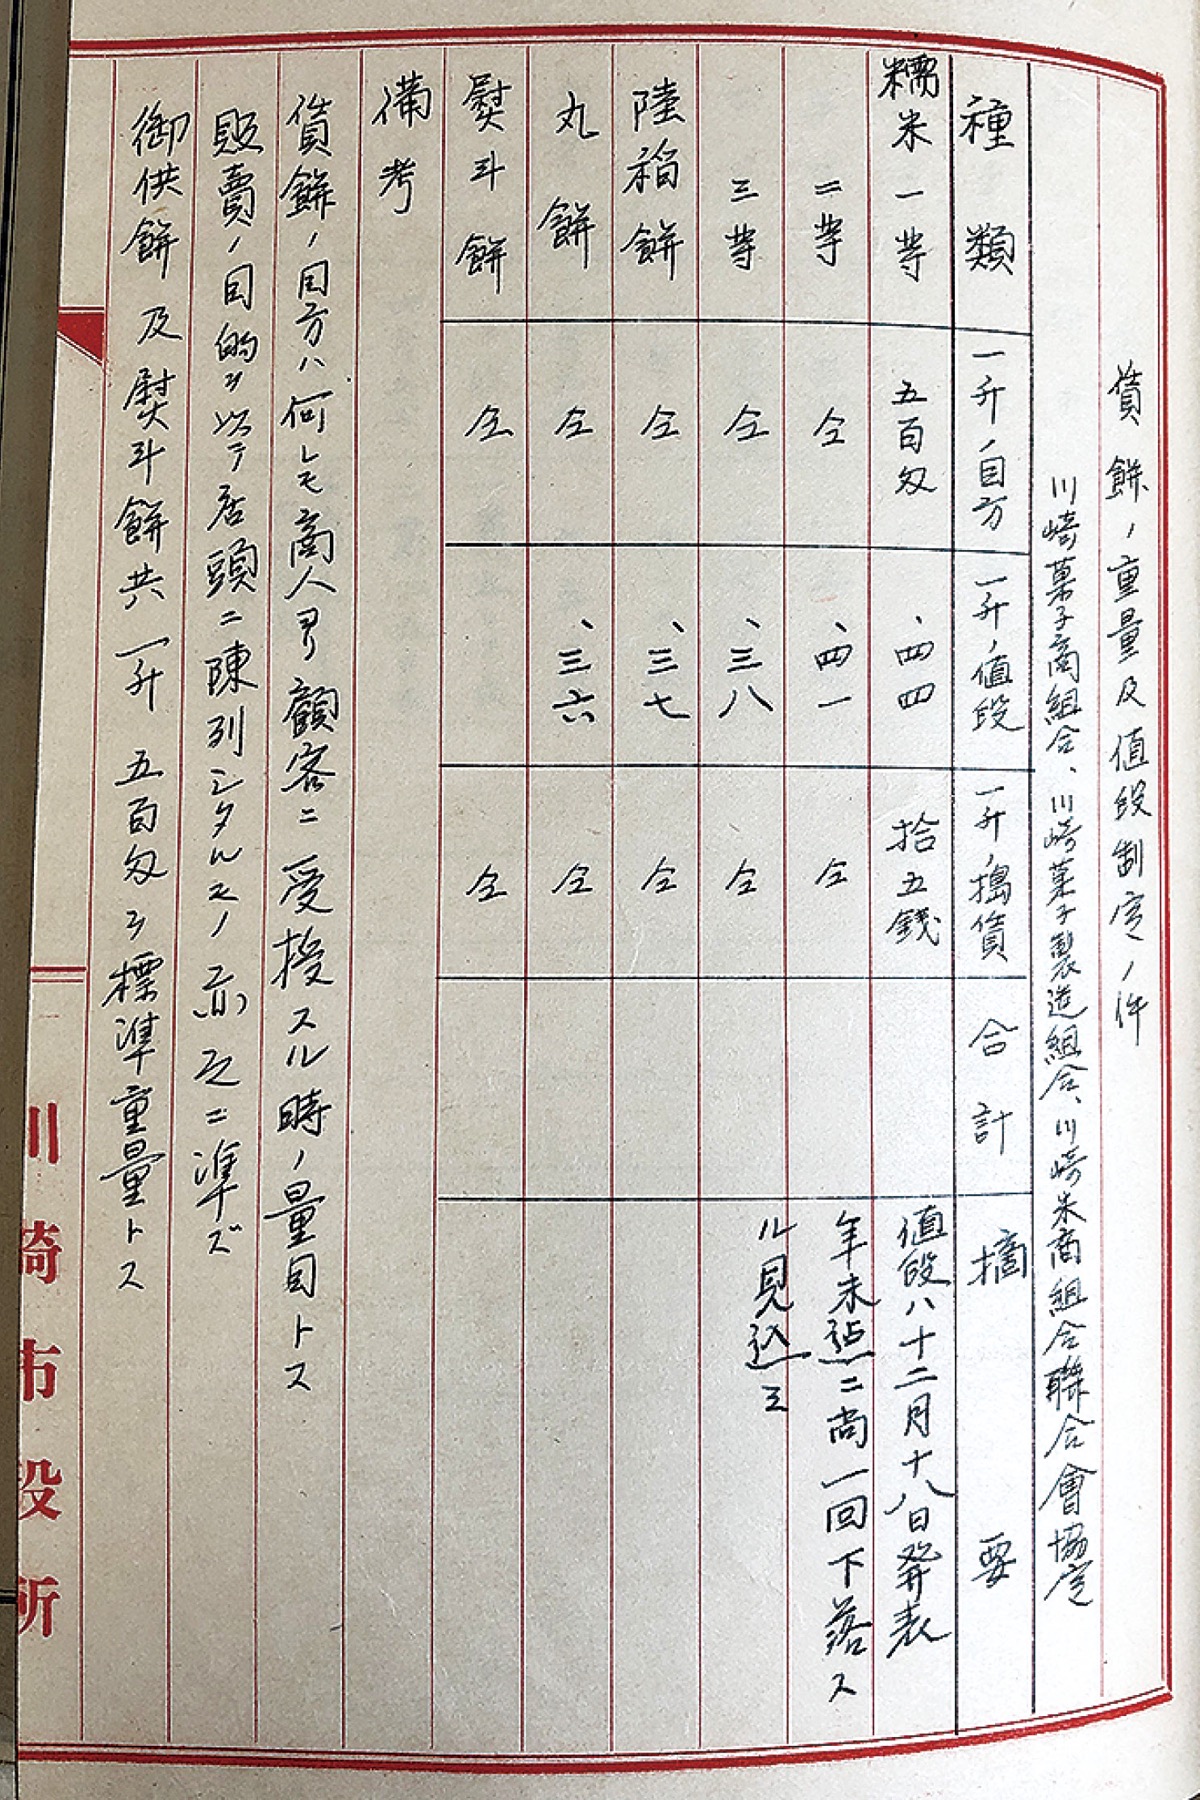 賃餅ノ重量及値段制定ノ件
川崎菓子商組合、川崎菓子製造組合、川崎米商組合聯合會協定
種類 一升ノ目方 一升ノ値段 一升ノ搗賃 合計 摘要
糯米一等 五百匁 、四四 拾五銭 値段ハ十二月十八日発表
二等 仝 、四一 仝 年末迠ニ尚一回下落ス
三等 仝 、三八 仝 ル見込ミ
陸稲餅 仝 、三七 仝
丸餅 仝 、三六 仝
熨斗餅 仝 仝
備考
賃餅ノ目方ハ何レモ商人ヨリ顧客ニ受授スル時ノ量目トス
販賣ノ目的ヲ以テ店頭ニ陳列シタルモノ亦之ニ準ズ
御供餅及熨斗餅共一升五百匁ヲ標準重量トス
川崎市役所